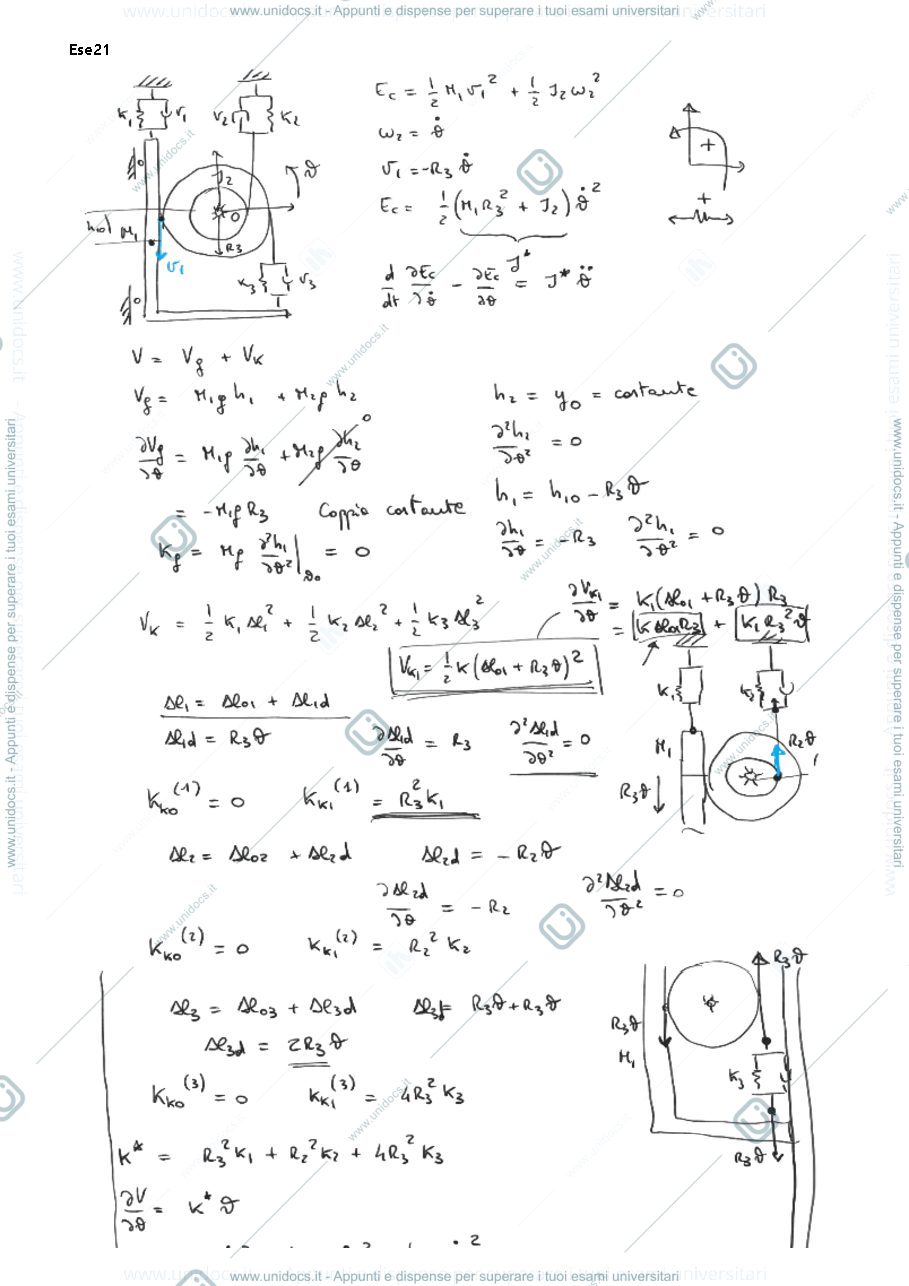 www.unidocs.it - Appunti e dispense per superare i tuoi esami universitari
Ese21
K₁ r₁ r₂ K₂
J₂ ϑ
O
M₁ R₃
v₁ K₃ r₃
Ec = 1/2 M₁ v₁² + 1/2 J₂ ω₂²
ω₂ = ϑ̇
v₁ = -R₃ ϑ̇
Ec = 1/2 (M₁ R₃² + J₂) ϑ̇²
J*
d/dt ∂Ec/∂ϑ̇ - ∂Ec/∂ϑ = J* ϑ̈
+
+
V = Vg + VK
Vg = M₁ g h₁ + M₂ g h₂
h₂ = y₀ = costante
∂Vg/∂ϑ = M₁ g ∂h₁/∂ϑ + M₂ g ∂h₂/∂ϑ 0
∂²h₂/∂ϑ² = 0
= -M₁ g R₃ Coppia costante
h₁ = h₁₀ - R₃ ϑ
Kg = Mg ∂²h₁/∂ϑ² |ϑ₀ = 0
∂h₁/∂ϑ = -R₃ ∂²h₁/∂ϑ² = 0
VK = 1/2 K₁ Δl₁² + 1/2 K₂ Δl₂² + 1/2 K₃ Δl₃²
∂VK₁/∂ϑ = K₁ (Δl₀₁ + R₃ ϑ) R₃
= K Δl₀₁ R₃ + K₁ R₃² ϑ
VK₁ = 1/2 K (Δl₀₁ + R₃ ϑ)²
Δl₁ = Δl₀₁ + Δl₁d
Δl₁d = R₃ ϑ ∂Δl₁d/∂ϑ = R₃ ∂²Δl₁d/∂ϑ² = 0
K₁
M₁ R₂ϑ
R₃ϑ
KK₀⁽¹⁾ = 0 KK₁⁽¹⁾ = R₃² K₁
Δl₂ = Δl₀₂ + Δl₂d Δl₂d = - R₂ ϑ
∂Δl₂d/∂ϑ = - R₂ ∂²Δl₂d/∂ϑ² = 0
KK₀⁽²⁾ = 0 KK₁⁽²⁾ = R₂² K₂
Δl₃ = Δl₀₃ + Δl₃d Δl₃d = R₃ϑ + R₃ϑ
Δl₃d = 2R₃ ϑ
KK₀⁽³⁾ = 0 KK₁⁽³⁾ = 4R₃² K₃
R₃ϑ
R₃ϑ
M₁
K₃
R₃ϑ
K* = R₃² K₁ + R₂² K₂ + 4R₃² K₃
∂V/∂ϑ = K* ϑ
www.unidocs.it - Appunti e dispense per superare i tuoi esami universitari